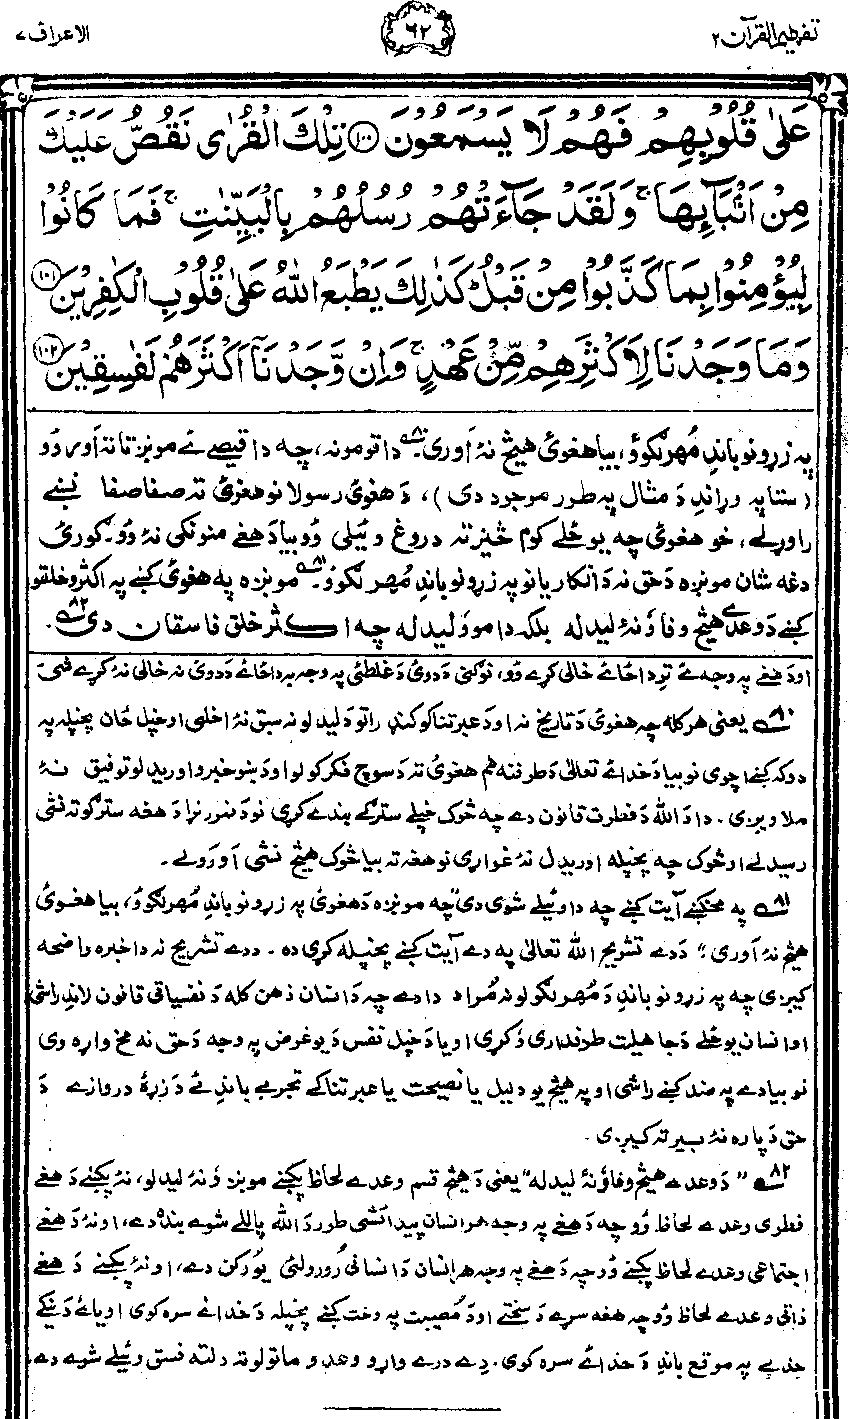 تفهیم القرآن ۲
۶۲
الاعراف ۷
عَلٰی قُلُوْبِهِمْ فَهُمْ لَا یَسْمَعُوْنَ ﴿۱۰۰﴾ تِلْكَ الْقُرٰی نَقُصُّ عَلَیْكَ
مِنْ اَنْۢبَآىِٕهَا ۚ وَلَقَدْ جَآءَتْهُمْ رُسُلُهُمْ بِالْبَیِّنٰتِ ۚ فَمَا كَانُوْا
لِیُؤْمِنُوْا بِمَا كَذَّبُوْا مِنْ قَبْلُ ؕ كَذٰلِكَ یَطْبَعُ اللّٰهُ عَلٰی قُلُوْبِ الْكٰفِرِیْنَ ﴿۱۰۱﴾
وَمَا وَجَدْنَا لِاَكْثَرِهِمْ مِّنْ عَهْدٍ ۚ وَاِنْ وَّجَدْنَاۤ اَكْثَرَهُمْ لَفٰسِقِیْنَ ﴿۱۰۲﴾
په زړونو باندِ مُهر لګوؤ، بیا هغوئ هیڅ نۀ اَوری.۸۰ دا قومونه، چه دا قیصے ئے مونږ تا ته اَوروُو
(ستا په وړاندِ دَ مثال په طور موجود دی)، دَ هغوئ رسولانو هغوئ ته صفا صفا نښے
راوړلے، خو هغوئ چه یو ځلے کوم څیز ته دروغ وئیلی وُو بیا دَ هغے منونکی نۀ وُو. ګوری
دغه شان مونږه دَ حق نه دَ انکاریانو په زړونو باندِ مُهر لګوؤ.۸۱ مونږه په هغوئ کښے په اکثرو خلقو
کښے دَ وعدے هیڅ وفا وُ نۀ لیدله بلکه دا مو وُ لیدله چه اکثر خلق فاسقان دی.۸۲
اودَ هغے په وجه ئے تر دا ځائے خالی کړے وُو، نو کنی دَ دوئ دَ غلطئی په وجه به دا ځائے دَ دوئ نه خالی نۀ کړے شی
۸۰ یعنی هر کله چه هغوئ دَ تاریخ نه اودَ عبرتناکو کنډراتو دَ لیدلو نه سبق نۀ اخلی او خپل ځان پخپله په
دوکه کښے اچوی نو بیا دَ خدائے تعالیٰ دَ طرفنه هم هغوئ ته دَ سوچ فکر کولو اودَ ښو خبرو اوریدلو توفیق نۀ
ملاویږی. دا دَ الله دَ فطرت قانون دے چه څوک خپلے سترګے بندے کړی نو دَ نمر رنړا دَ هغه سترګو ته نشی
رسیدلے او څوک چه پخپله اوریدل نۀ غواړی نو هغه ته بیا څوک هیڅ نشی اَورولے.
۸۱ په مخکښے آیت کښے چه دا وئیلے شوی دی "چه مونږه دَ هغوئ په زړونو باندِ مُهر لګوؤ، بیا هغوئ
هیڅ نۀ اَوری"، دَ دے تشریح الله تعالیٰ په دے آیت کښے پخپله کړی ده. د دے تشریح نه دا خبره واضحه
کیږی چه په زړونو باندِ دَ مُهر لګولو نه مُراد دا دے چه دَ انسان ذهن کله دَ نفسیاتی قانون لاندِ راشی
او انسان یو ځلے دَ جاهلیت طرفداری وُکړی او یا دَ خپل نفس دَ یو غرض په وجه دَ حق نه مخ واړه وی
نو بیا دے په ضد کښے راشی او په هیڅ یو دلیل یا نصیحت یا عبرتناکے تجربے باندِ ئے دَ زړۀ دروازے دَ
حق دَ پاره نۀ بیرته کیږی.
۸۲ "دَ وعدے هیڅ وفا وُ نۀ لیدله" یعنی دَ هیڅ قسم وعدے لحاظ پکښے مونږ وُ نۀ لیدلو، نۀ پکښے دَ هغے
فطری وعدے لحاظ وُو چه دَ هغے په وجه هر انسان پیدائشی طور دَ الله پاللے شوے بنده دے، او نۀ دَ هغے
اجتماعی وعدے لحاظ پکښے وُو چه دَ هغے په وجه هر انسان دَ انسانی ورورولئی یو رکن دے، او نۀ پکښے دَ هغے
ذاتی وعدے لحاظ وُو چه هغه سړے دَ سختے اودَ مصیبت په وخت کښے پخپله دَ خدائے سره کوی او یا ئے دَ نیکے
جذبے په موقع باندِ دَ خدائے سره کوی. دِ دے درے واړو وعدو ماتولو ته دلته فسق وئیلے شوے دے.